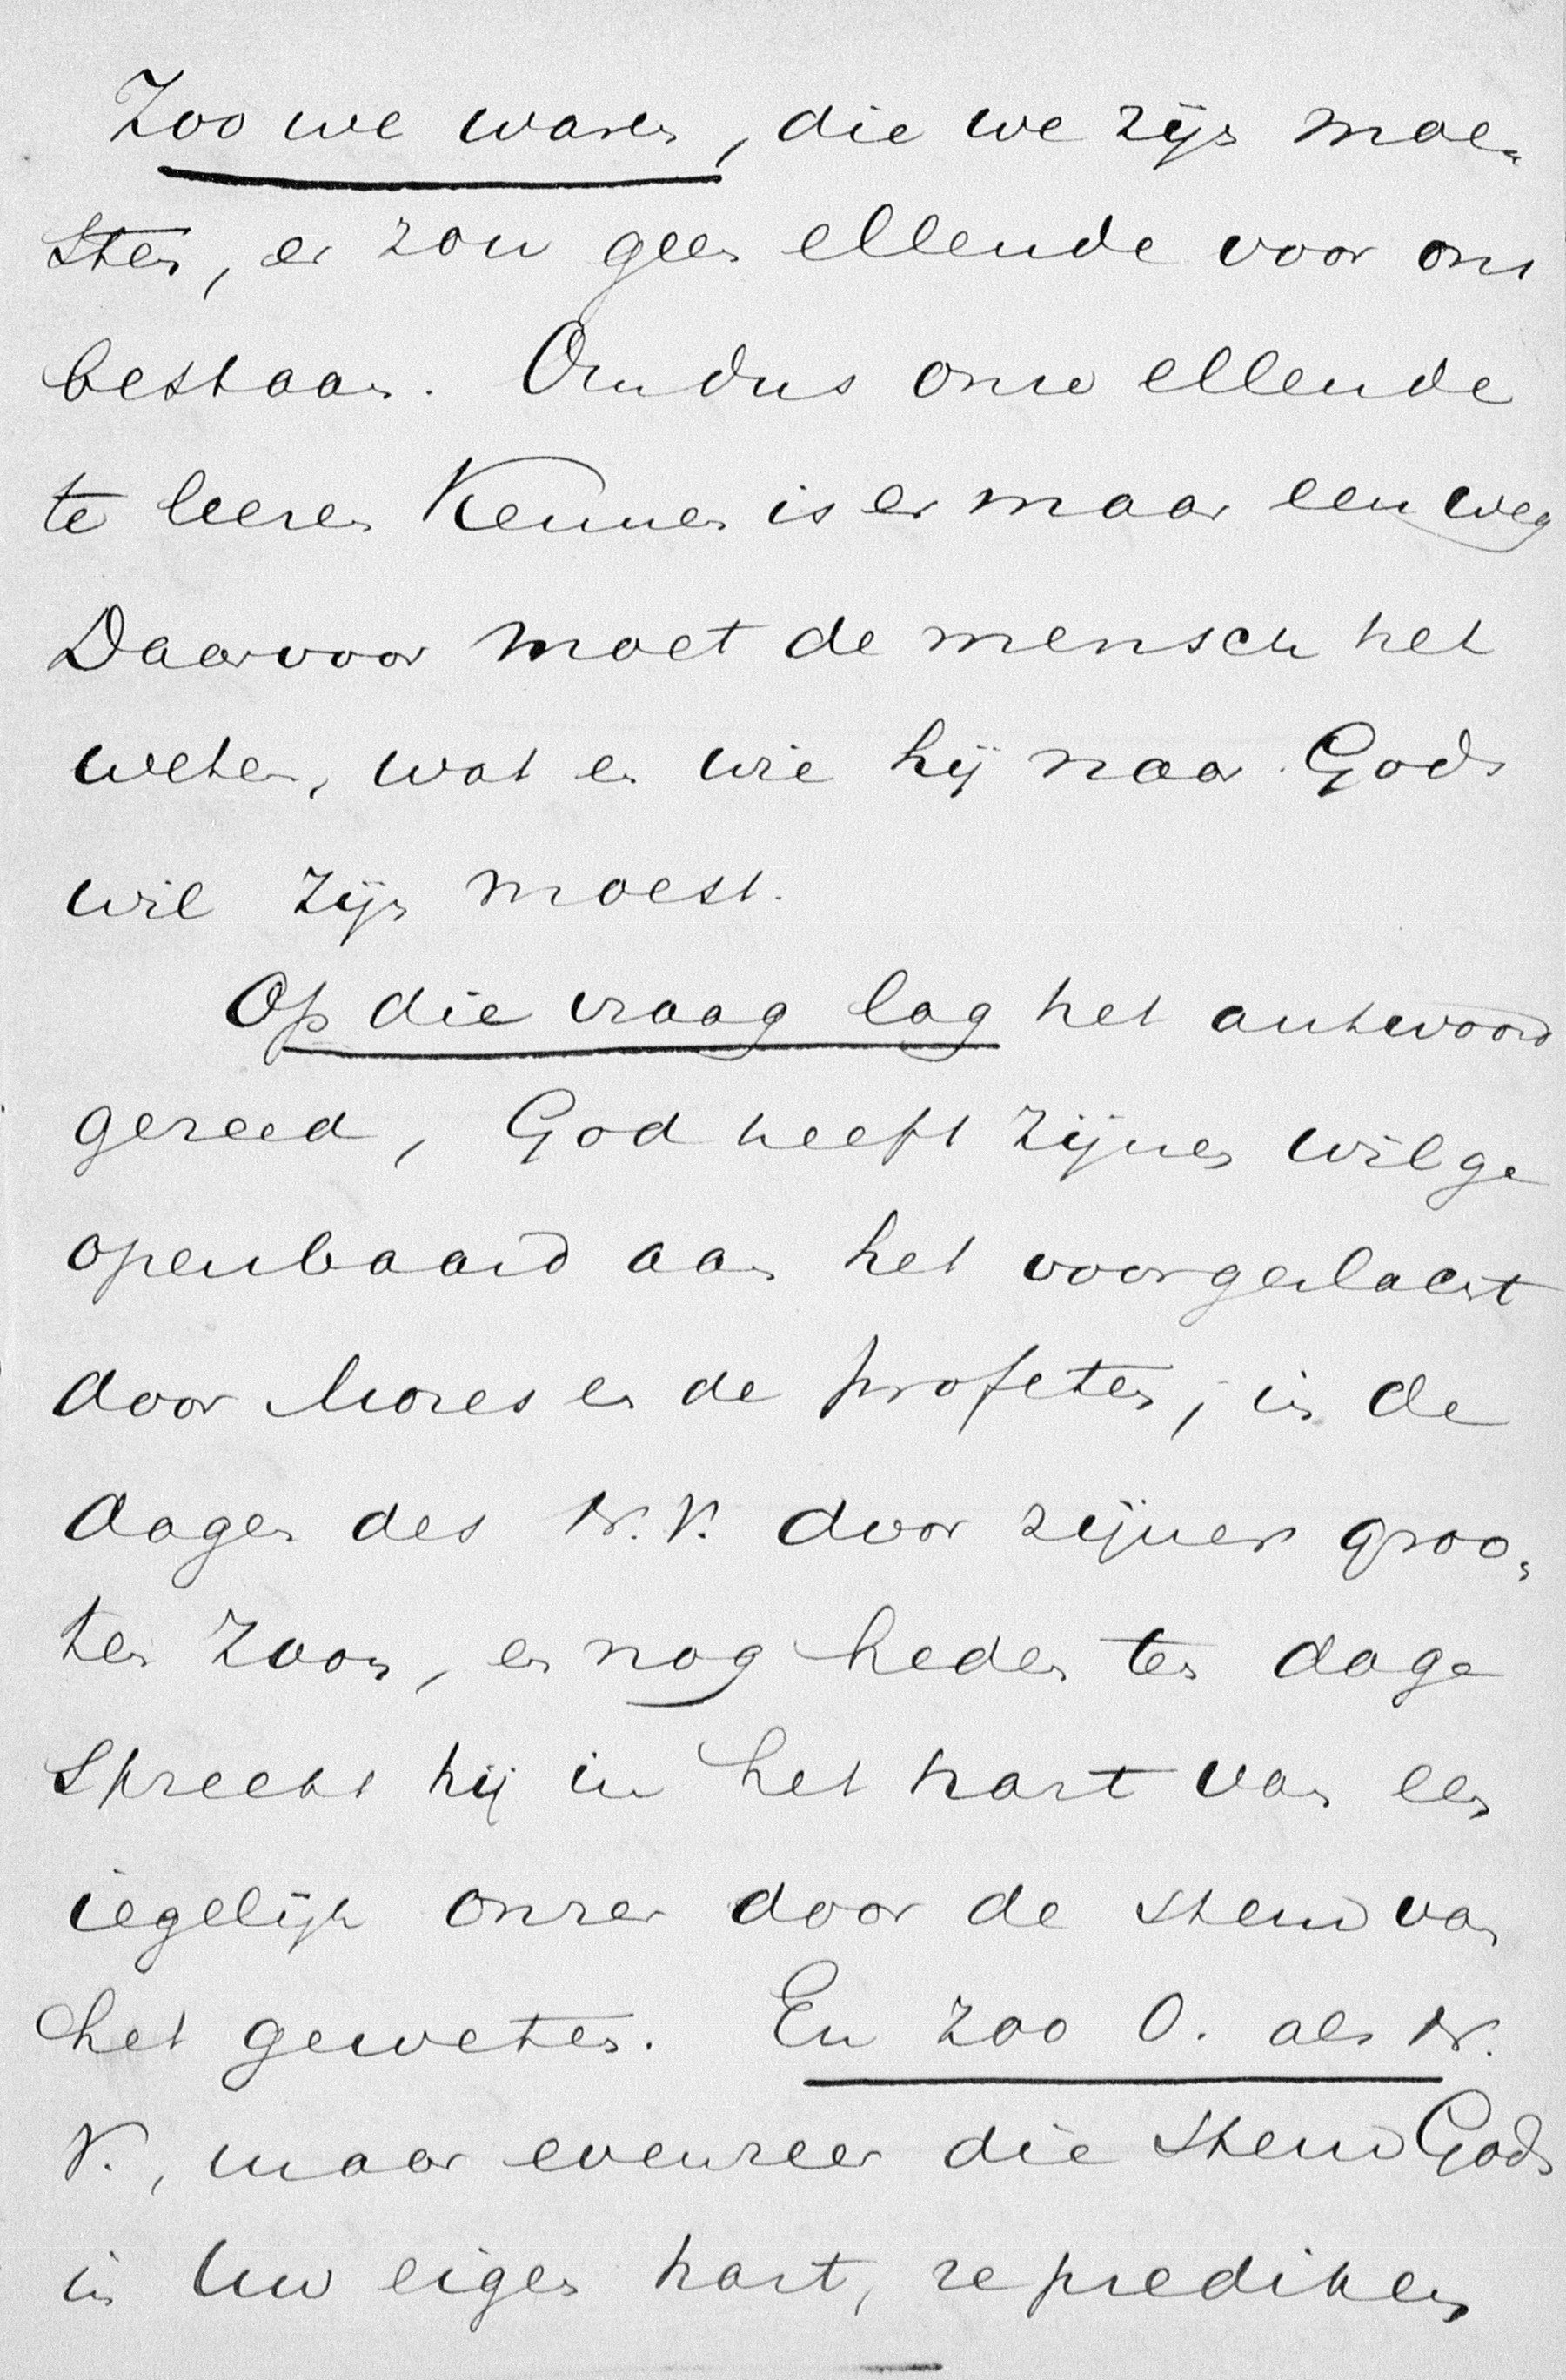 Zoo we waren, die we zijn moe-
sten, er zou geen ellende voor ons
bestaan. Om dus onze ellende
te leeren kennen is er maar een weg
Daarvoor moet de mensch het
weten, wat en wie hij naar Gods
wil zijn moest.
Op die vraag lag het antwoord
gereed, God heeft zijnen wil ge
openbaard aan het voorgeslacht
door Mozes en de profeten, in de
dagen des N.V. door zijnen groo-
ten Zoon, en nog heden ten dage
spreekt hij in het hart van een
iegelijk onzer door de stem van
het geweten. En zoo O. als N.
V., maar evenzeer die stem Gods
in Uw eigen hart, ze prediken